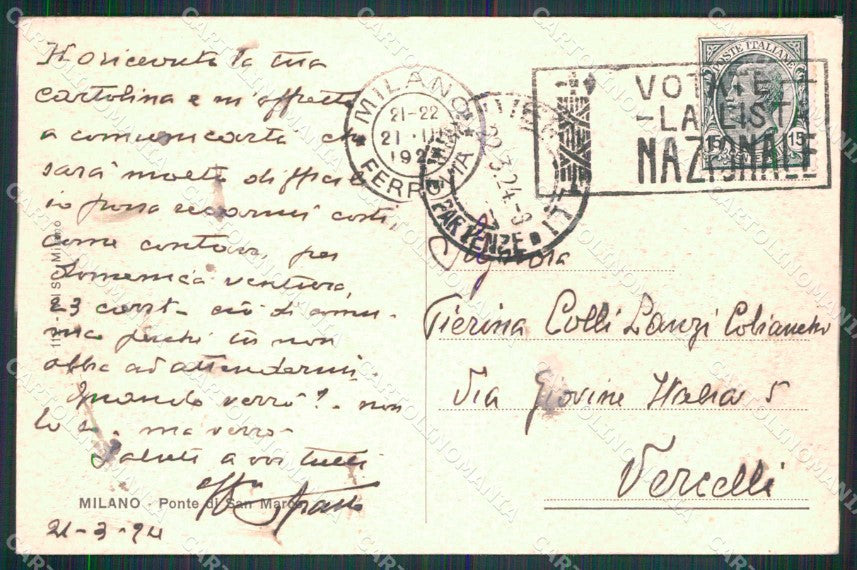 Ho ricevuto la tua
cartolina e m'affretto
a comunicarti che
sarà molto difficile
io possa recarmi costì
come contavo, per
Domenica ventura,
23 corrt-
perchè tu non
abbia ad attendermi.
Quando verrò? - non
lo so - ma verrò -
Saluti a voi tutti
MILANO - Ponte di San Marco
21-3-24
MILANO
21-22
21 · III
192
FERROVIA
22.3.24
PARTENZE
POSTE ITALIANE
15
15
VOTATE -
- LA LISTA
NAZIONALE
Signora
Pierina Colli Lanzi Cobianchi
Via Giovine Italia 5
Vercelli
CARTOLINOMANIA